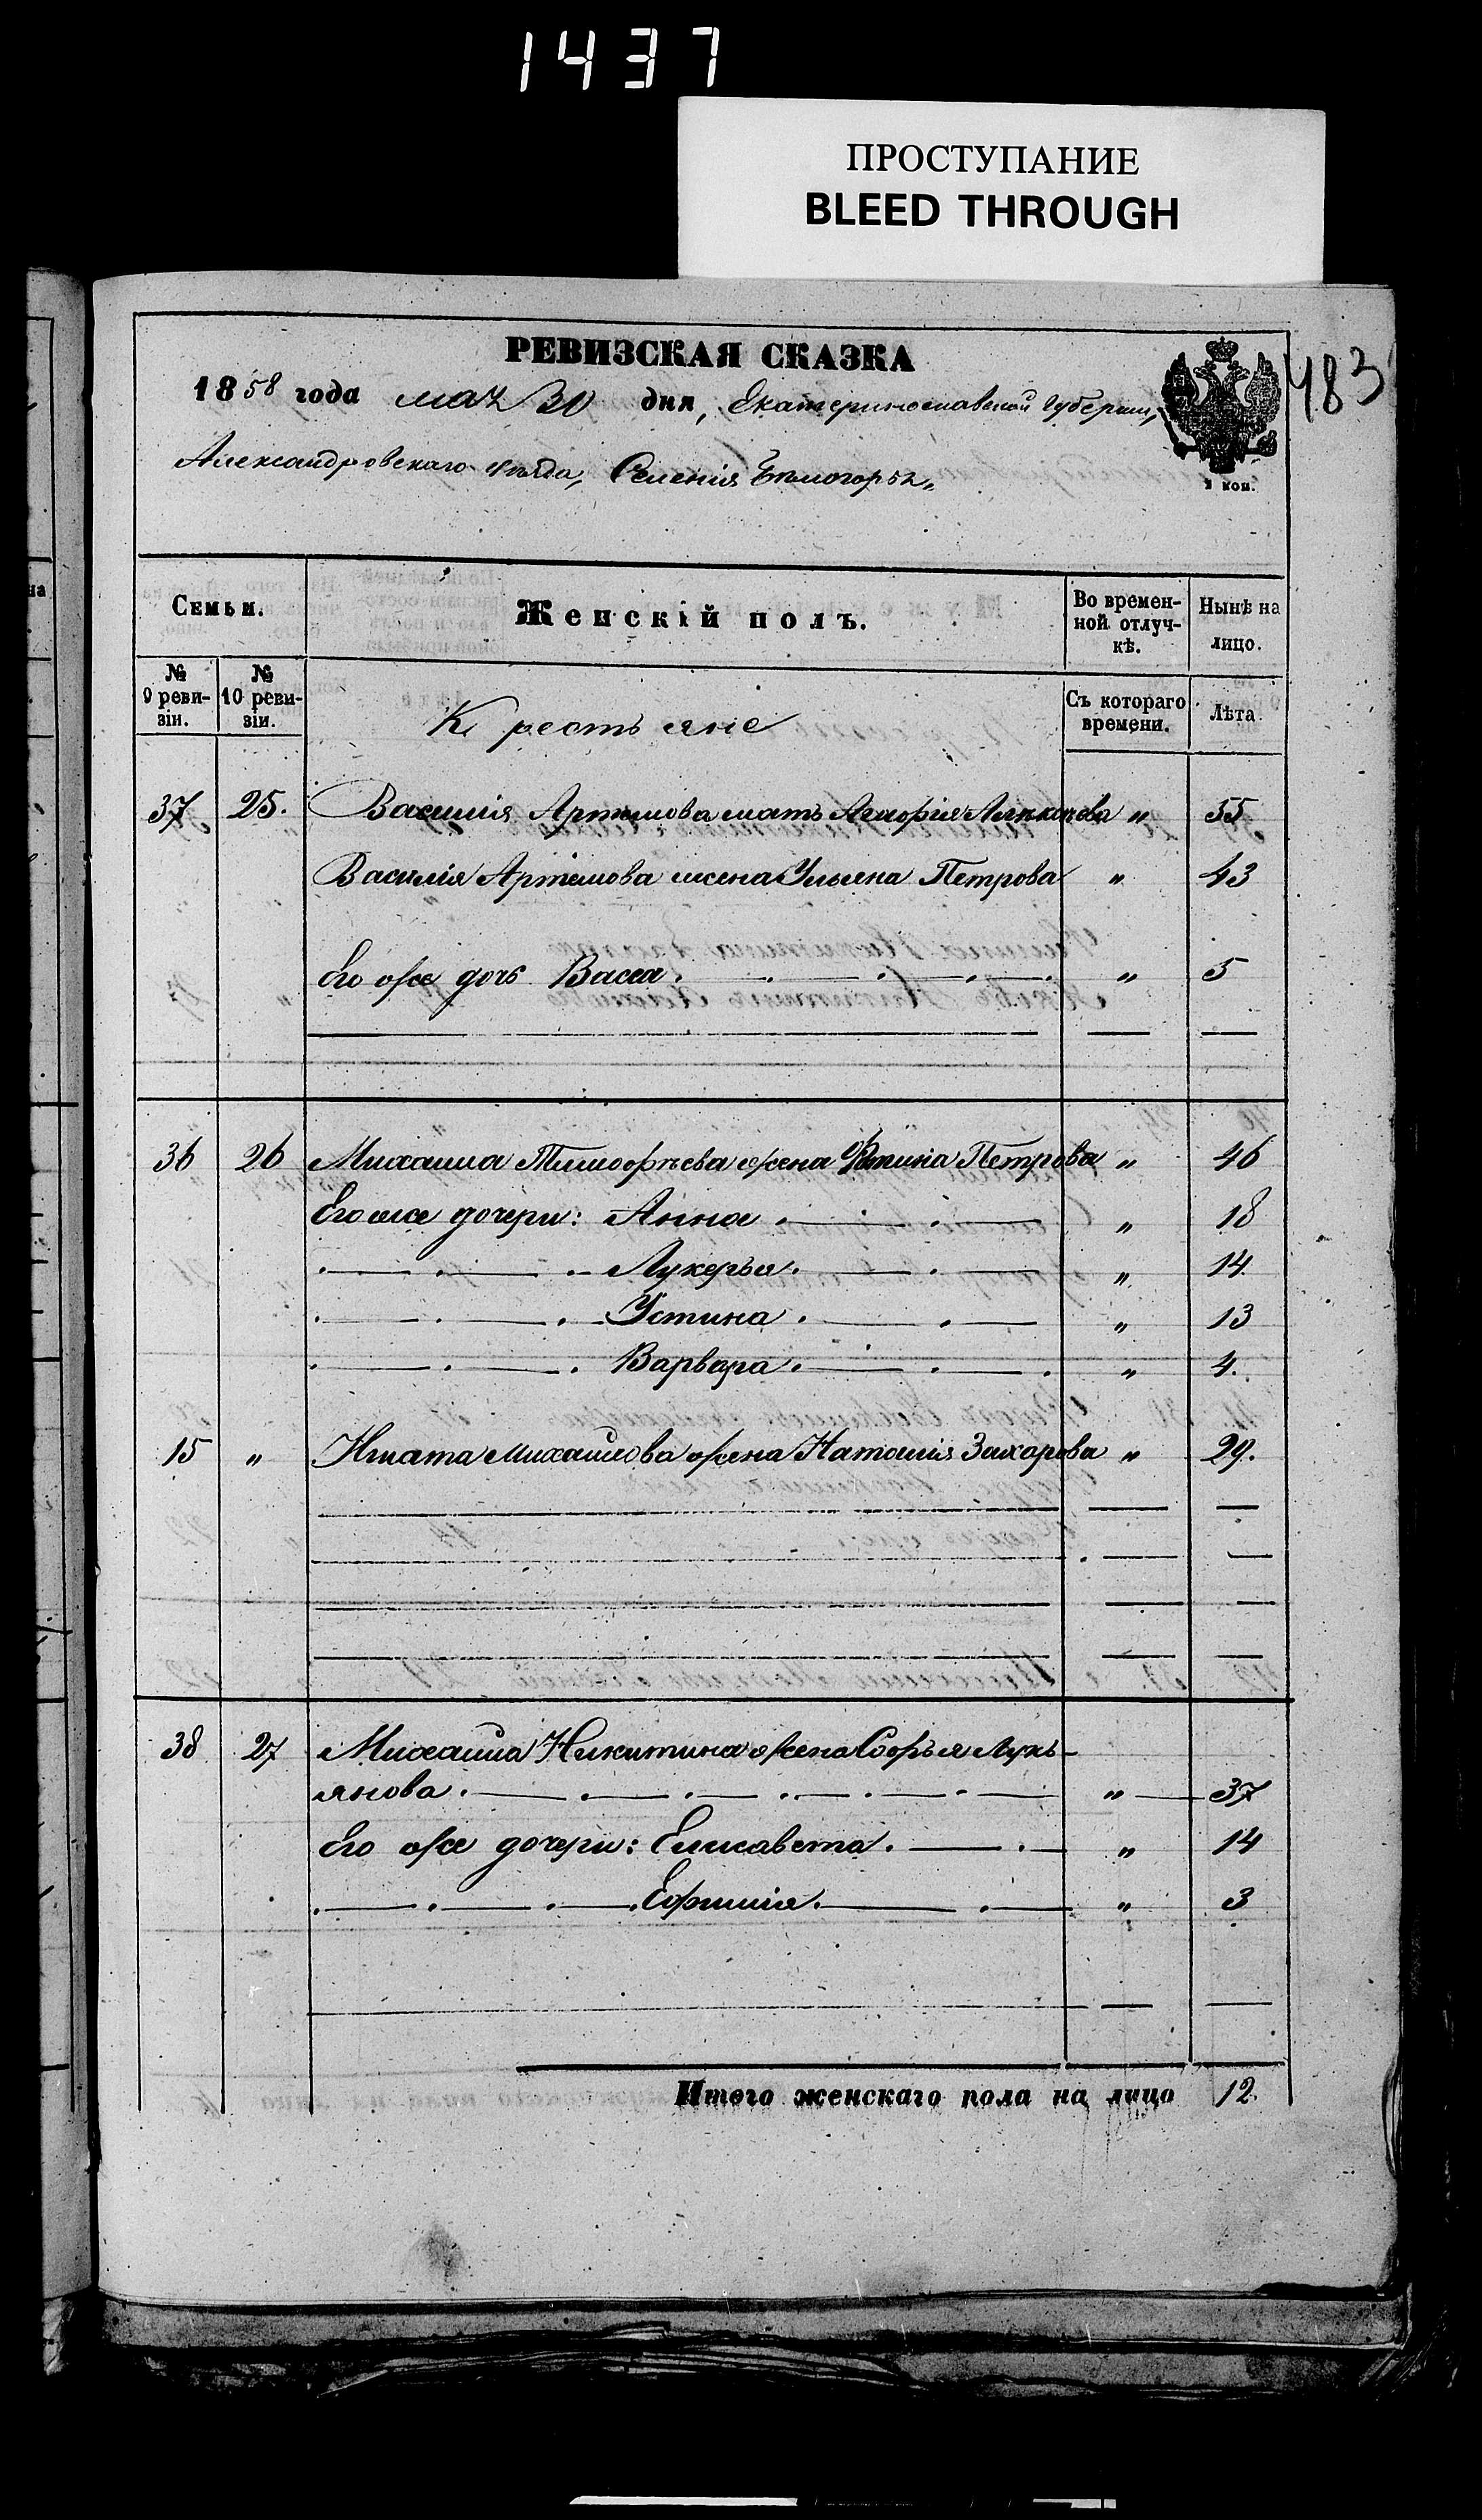 1437
ПРОСТУПАНИЕ
BLEED THROUGH
РЕВИЗСКАЯ СКАЗКА
483
1858 года мая 30 дня, Екатеринославской Губернии,
Александровскаго уѣзда, Селенія Бѣлогорья.
коп.
Семьи.
Женскій полъ.
Во времен-
ной отлуч-
кѣ.
Нынѣ на
лицо.
№
9 реви-
зіи.
№
10 реви-
зіи.
Крестьяне
Съ котораго
времени.
Лѣта.
37 25. Василія Артемова мать Агафія " 55
Василія Артемова жена Ульяна Петрова " 43
Его же дочь Васса. " 5
36 26 Михаила Тимофѣева жена Петрова " 46
Его же дочери: Анна. " 18
Лукерья. " 14
Устина. " 13
Варвара. " 4.
15 " Игната Михайлова жена Наталія Захарова " 29.
38 27 Михаила Никитина жена Софья Лукь-
янова. " 37
Его же дочери: Елисавета. " 14
Ефимія. " 3
Итого женскаго пола на лицо 12